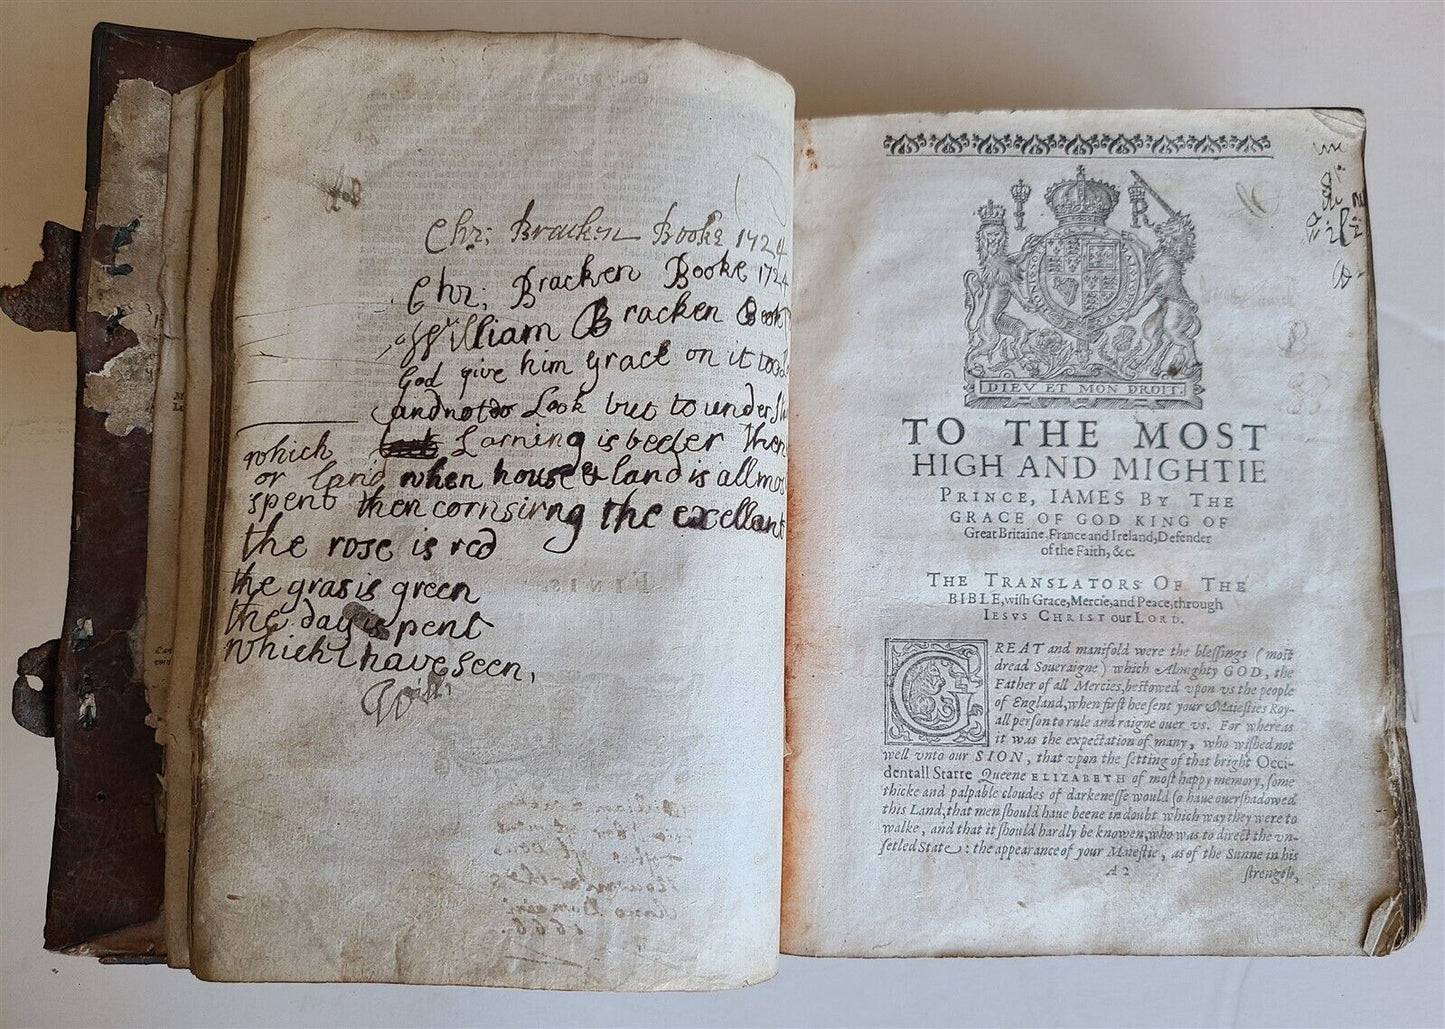 Chr: Bracken Booke 1724
Chr; Bracken Booke 1724
William Bracken Book
God give him grace on it to
and not to Look but to under
which Larning is beeter then
or land when house & land is all mos
spent then cornsirng the excellant
the rose is red
the gras is green
the day is pent
which I have seen,
Will:
I R
DIEV ET MON DROIT.
TO THE MOST
HIGH AND MIGHTIE
PRINCE, IAMES BY THE
GRACE OF GOD KING OF
Great Britaine, France and Ireland, Defender
of the Faith, &c.
THE TRANSLATORS OF THE
BIBLE, wish Grace, Mercie, and Peace, through
IESVS CHRIST our LORD.
GREAT and manifold were the blessings (most
dread Soueraigne) which Almighty GOD, the
Father of all Mercies, bestowed vpon vs the people
of England, when first hee sent your Maiesties Roy-
all person to rule and raigne ouer vs. For whereas
it was the expectation of many, who wished not
well vnto our SION, that vpon the setting of that bright Occi-
dentall Starre Queene ELIZABETH of most happy memory, some
thicke and palpable cloudes of darkenesse would so haue ouershadowed
this Land, that men should haue beene in doubt which way they were to
walke, and that it should hardly be knowen, who was to direct the vn-
setled State: the appearance of your Maiestie, as of the Sunne in his
A2 strength,